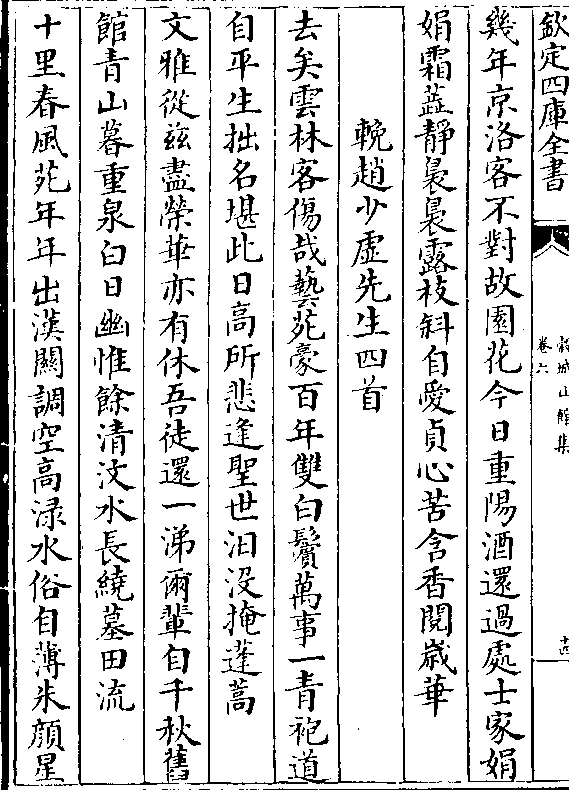 欽定四庫全書
穀城山館集
卷六
十四
幾年京洛客不對故園花今日重陽酒還過處士家娟
娟霜蕋靜裊裊露枝斜自愛貞心苦含香閱歲華
輓趙少虛先生四首
去矣雲林客傷哉藝苑豪百年雙白鬢萬事一青袍道
自平生拙名堪此日高所悲逢聖世汩没掩蓬蒿
文雅從兹盡榮華亦有休吾徒還一涕爾輩自千秋舊
館青山暮重泉白日幽惟餘清汶水長繞墓田流
十里春風苑年年出漢關調空高渌水俗自薄朱顔星